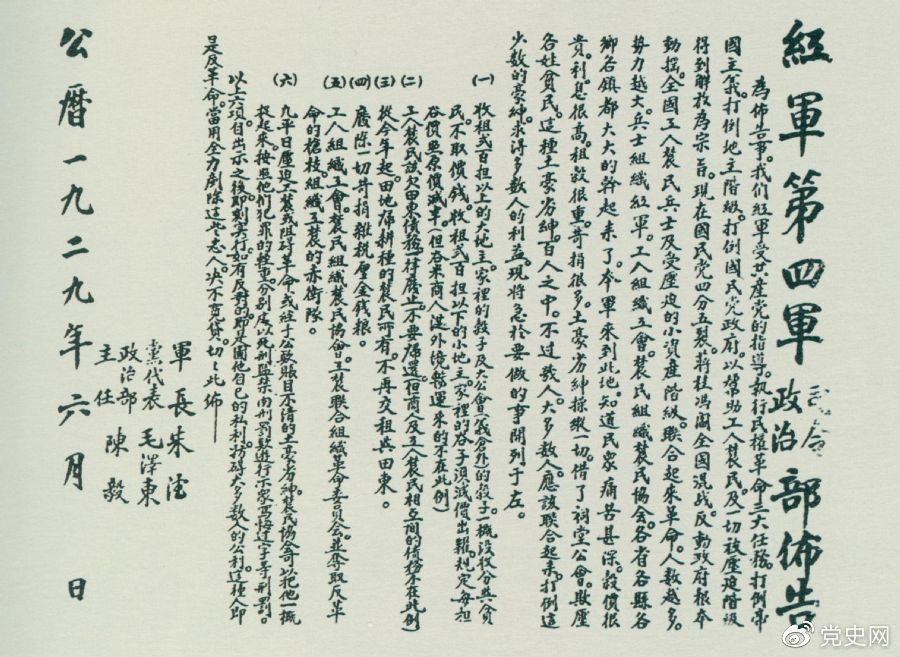 紅軍第四軍司令政治部佈告
為佈告事。我們紅軍受共產黨的指導。執行民權革命三大任務。打倒帝
國主義。打倒地主階級。打倒國民党政府。以幫助工人農民。及一切被壓迫階級
得到解放為宗旨。現在國民党四分五裂。蔣桂馮閻全國混战。反動政府根本
動搖。全國工人農民兵士及受壓迫的小資產階級。聯合起來革命。人數越多。
勢力越大。兵士組織紅軍。工人組織工會。農民組織農民協会。各省各縣各
鄉各鎮都大大的幹起來了。本軍來到此地。知道民眾痛苦甚深。穀價很
貴。利息很高。租穀很重。苛捐很多。土豪劣紳操縱一切。借了祠堂公會。欺壓
各姓貧民。這種土豪劣紳。百人之中。不过数人。大多数人。應該联合起来。打倒這
少数的豪紳。求得多数人的利益。現将急於要做的事開列于左。
(一) 收租弍百担以上的大地主。家裡的穀子及大公會(義倉外)的穀子。一概没收分与貧
民。不取價钱。收租弍百担以下的小地主。家裡的谷子。須減價出糶。規定每担
谷價照原價減半。(但谷米商人從外境辦運来的不在此例)
(二) 工人農民該欠田東債務。一律廢止。不要歸還。(但商人及工人農民相互間的債務不在此例)
(三) 從今年起。田地歸耕種的農民所有。不再交租与田東。
(四) 廢除一切苛捐雜税厘金錢糧。
(五) 工人組織工會。農民組織農民協會。工農联合組織革命委員会。並奪取反革
命的槍枝組織工農的赤衛隊。
(六) 九平日壓迫工農或阻碍革命。或經手公款賬目不清的土豪劣紳。農民協會可以把他一概
捉起來。按照他们犯罪的輕重。分别處以死刑監禁肉刑罰款遊行示眾寫悔过字等刑罰。
以上六項自出示之後。即刻实行。如有反對的。即是圖他自己的私利。妨碍大多数人的公利。這種人即
是反革命。當用全力剷除。這些惡人。决不寬貸。切切此佈
軍長 朱德
黨代表 毛澤東
政治部主任 陳毅
公曆一九二九年六月 日
党史网